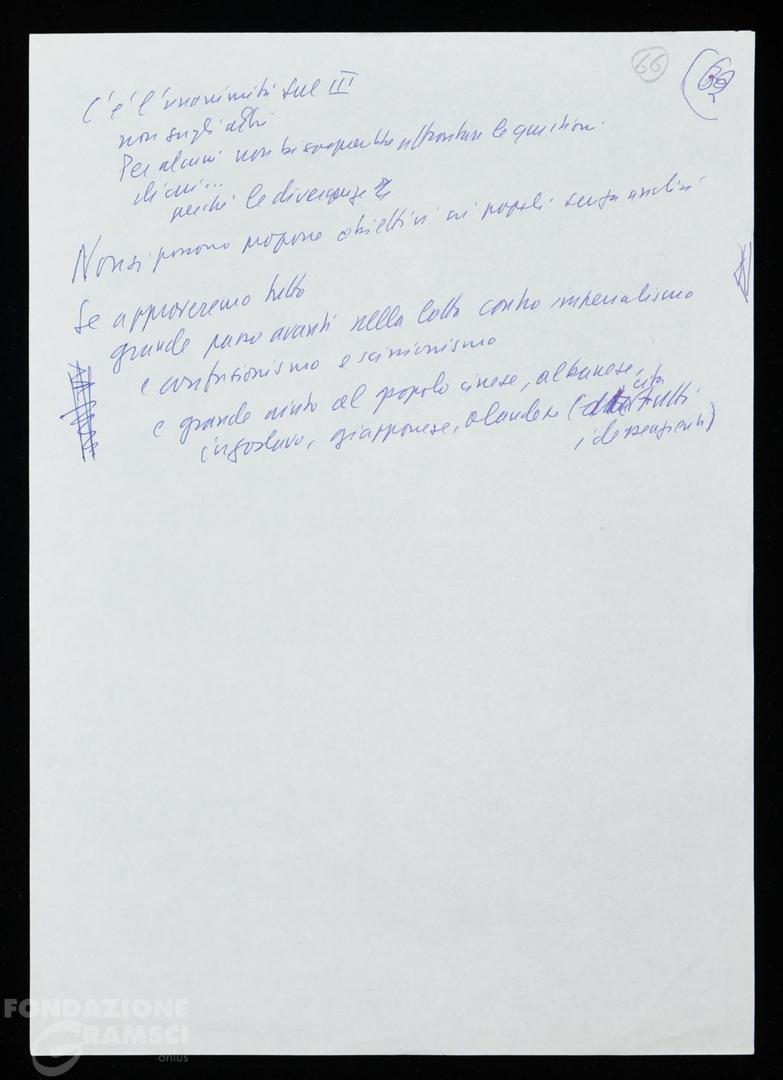 66
C'è l'unanimità sul III
non sugli altri
Per alcuni non bisognerebbe affrontare le questioni
di cui...
perché le divergenze
Non si possono proporre obiettivi ai popoli senza analisi
Se approveremo tutto
grande passo avanti nella lotta contro imperialismo
e opportunismo e scissionismo
e grande aiuto al popolo cinese, albanese,
iugoslavo, giapponese, olandese ( cita tutti
i dissenzienti)
FONDAZIONE
GRAMSCI
onlus